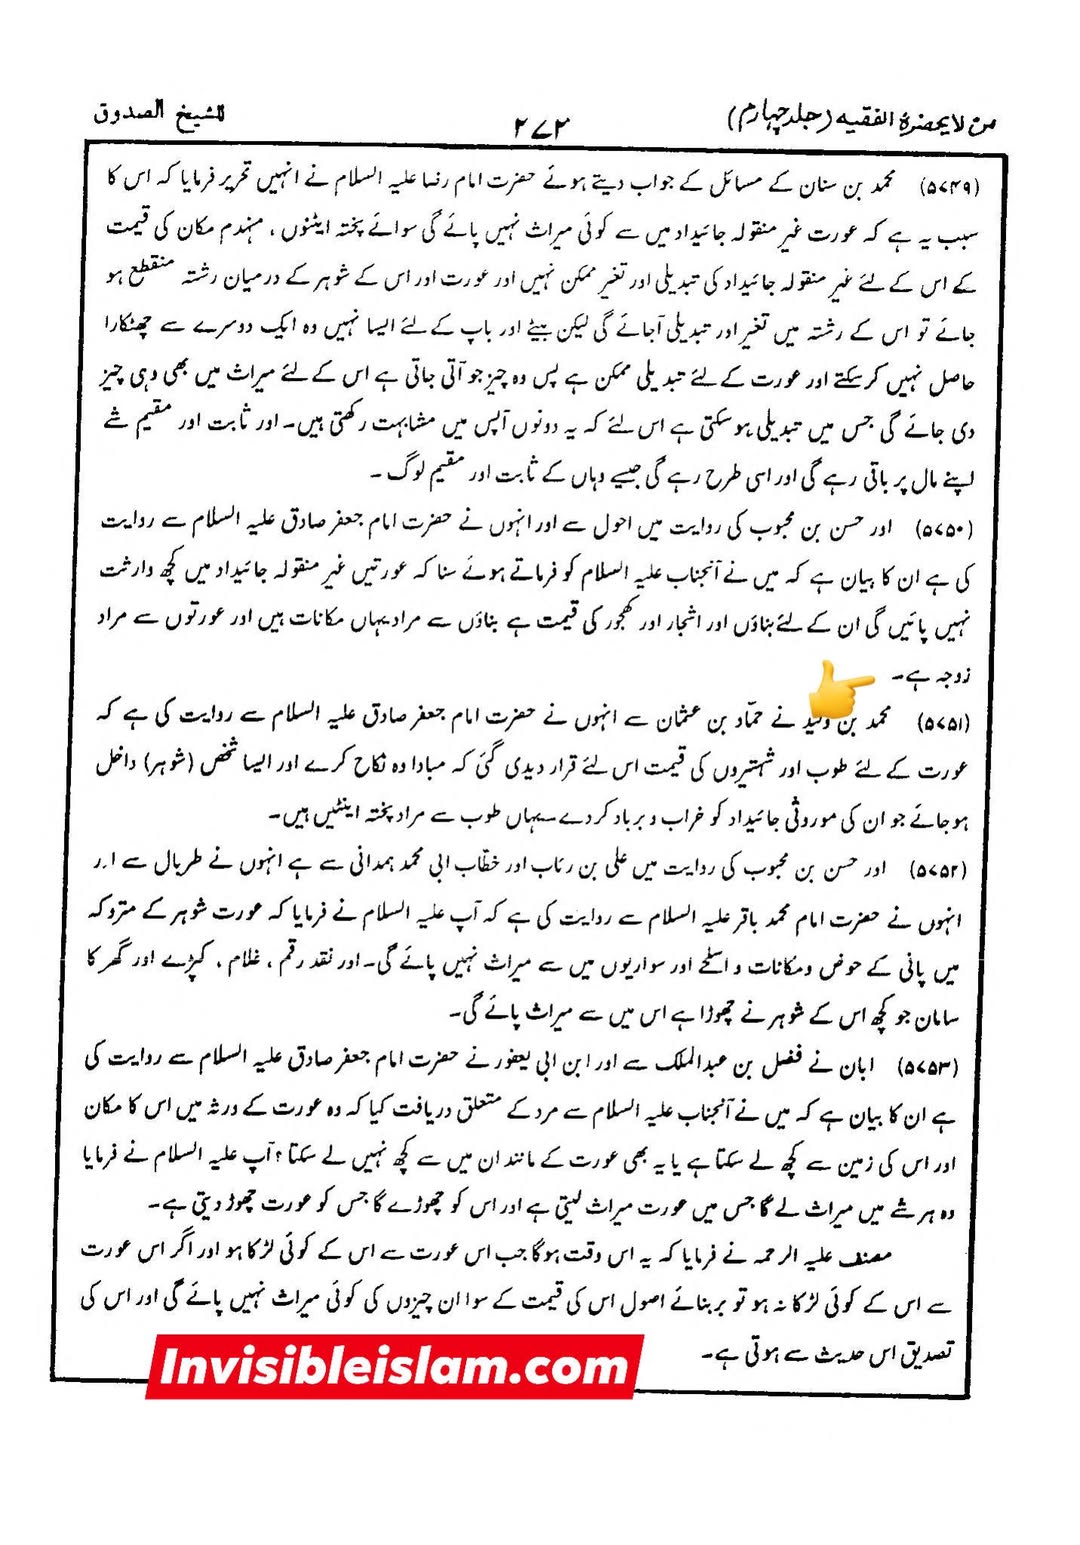 من لا یحضرہ الفقیہ (جلد چہارم)
۲۷۲
للشیخ الصدوق
(۵۷۴۹) محمد بن سنان کے مسائل کے جواب دیتے ہوئے حضرت امام رضا علیہ السلام نے انہیں تحریر فرمایا کہ اس کا
سبب یہ ہے کہ عورت غیر منقولہ جائیداد میں سے کوئی میراث نہیں پائے گی سوائے پختہ اینٹوں ، منہدم مکان کی قیمت
کے اس کے لئے غیر منقولہ جائیداد کی تبدیلی اور تغیر ممکن نہیں اور عورت اور اس کے شوہر کے درمیان رشتہ منقطع ہو
جائے تو اس کے رشتہ میں تغیر اور تبدیلی آجائے گی لیکن بیٹے اور باپ کے لئے ایسا نہیں وہ ایک دوسرے سے چھٹکارا
حاصل نہیں کر سکتے اور عورت کے لئے تبدیلی ممکن ہے پس وہ چیز جو آتی جاتی ہے اس کے لئے میراث میں بھی وہی چیز
دی جائے گی جس میں تبدیلی ہو سکتی ہے اس لئے کہ یہ دونوں آپس میں مشابہت رکھتی ہیں۔ اور ثابت اور مقیم شے
اپنے مال پر باقی رہے گی اور اسی طرح رہے گی جیسے وہاں کے ثابت اور مقیم لوگ ۔
(۵۷۵۰) اور حسن بن محبوب کی روایت میں احول سے اور انہوں نے حضرت امام جعفر صادق علیہ السلام سے روایت
کی ہے ان کا بیان ہے کہ میں نے آنجناب علیہ السلام کو فرماتے ہوئے سنا کہ عورتیں غیر منقولہ جائیداد میں کچھ وارثت
نہیں پائیں گی ان کے لئے بناؤں اور اشجار اور کھجور کی قیمت ہے بناؤں سے مراد یہاں مکانات ہیں اور عورتوں سے مراد
زوجہ ہے۔
(۵۷۵۱) محمد بن ولید نے حمّاد بن عثمان سے انہوں نے حضرت امام جعفر صادق علیہ السلام سے روایت کی ہے کہ
عورت کے لئے طوب اور شہتیروں کی قیمت اس لئے قرار دیدی گئی کہ مبادا وہ نکاح کرے اور ایسا شخص (شوہر) داخل
ہو جائے جو ان کی موروثی جائیداد کو خراب و برباد کردے۔ یہاں طوب سے مراد پختہ اینٹیں ہیں۔
(۵۷۵۲) اور حسن بن محبوب کی روایت میں علی بن رئاب اور خطّاب ابی محمد ہمدانی سے ہے انہوں نے طربال سے اور
انہوں نے حضرت امام محمد باقر علیہ السلام سے روایت کی ہے کہ آپ علیہ السلام نے فرمایا کہ عورت شوہر کے متروکہ
میں پانی کے حوض و مکانات و اسلحے اور سواریوں میں سے میراث نہیں پائے گی۔ اور نقد رقم ، غلام ، کپڑے اور گھر کا
سامان جو کچھ اس کے شوہر نے چھوڑا ہے اس میں سے میراث پائے گی۔
(۵۷۵۳) ابان نے فضل بن عبدالملک سے اور ابن ابی یعفور نے حضرت امام جعفر صادق علیہ السلام سے روایت کی
ہے ان کا بیان ہے کہ میں نے آنجناب علیہ السلام سے مرد کے متعلق دریافت کیا کہ وہ عورت کے ورثہ میں اس کا مکان
اور اس کی زمین سے کچھ لے سکتا ہے یا یہ بھی عورت کے مانند ان میں سے کچھ نہیں لے سکتا ؟ آپ علیہ السلام نے فرمایا
وہ ہر شے میں میراث لے گا جس میں عورت میراث لیتی ہے اور اس کو چھوڑے گا جس کو عورت چھوڑ دیتی ہے۔
مصنف علیہ الرحمہ نے فرمایا کہ یہ اس وقت ہوگا جب اس عورت سے اس کے کوئی لڑکا ہو اور اگر اس عورت
سے اس کے کوئی لڑکا نہ ہو تو بربنائے اصول اس کی قیمت کے سوا ان چیزوں کی کوئی میراث نہیں پائے گی اور اس کی
تصدیق اس حدیث سے ہوتی ہے۔
Invisibleislam.com